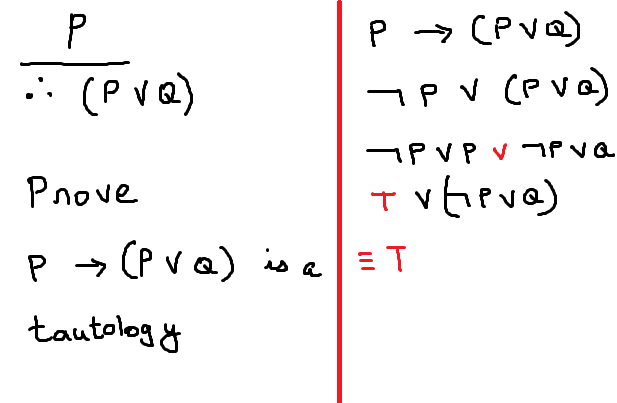 P
∴ (P ∨ Q)
Prove
P → (P ∨ Q) is a
tautology
P → (P ∨ Q)
¬ P ∨ (P ∨ Q)
¬ P ∨ P ∨ ¬ P ∨ Q
T ∨ (¬ P ∨ Q)
≡ T